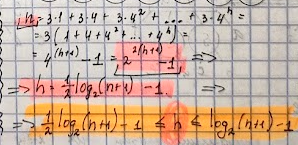 n = 3·1 + 3·4 + 3·4² + ... + 3·4ʰ =
= 3(1+4+4²+ ... +4ʰ) =
= 4⁽ʰ⁺¹⁾ - 1 = 2²⁽ʰ⁺¹⁾ - 1 =>
=> h = 1/2 log₂(n+1) - 1 =>
=> 1/2 log₂(n+1) - 1 ≤ h ≤ log₂(n+1) - 1